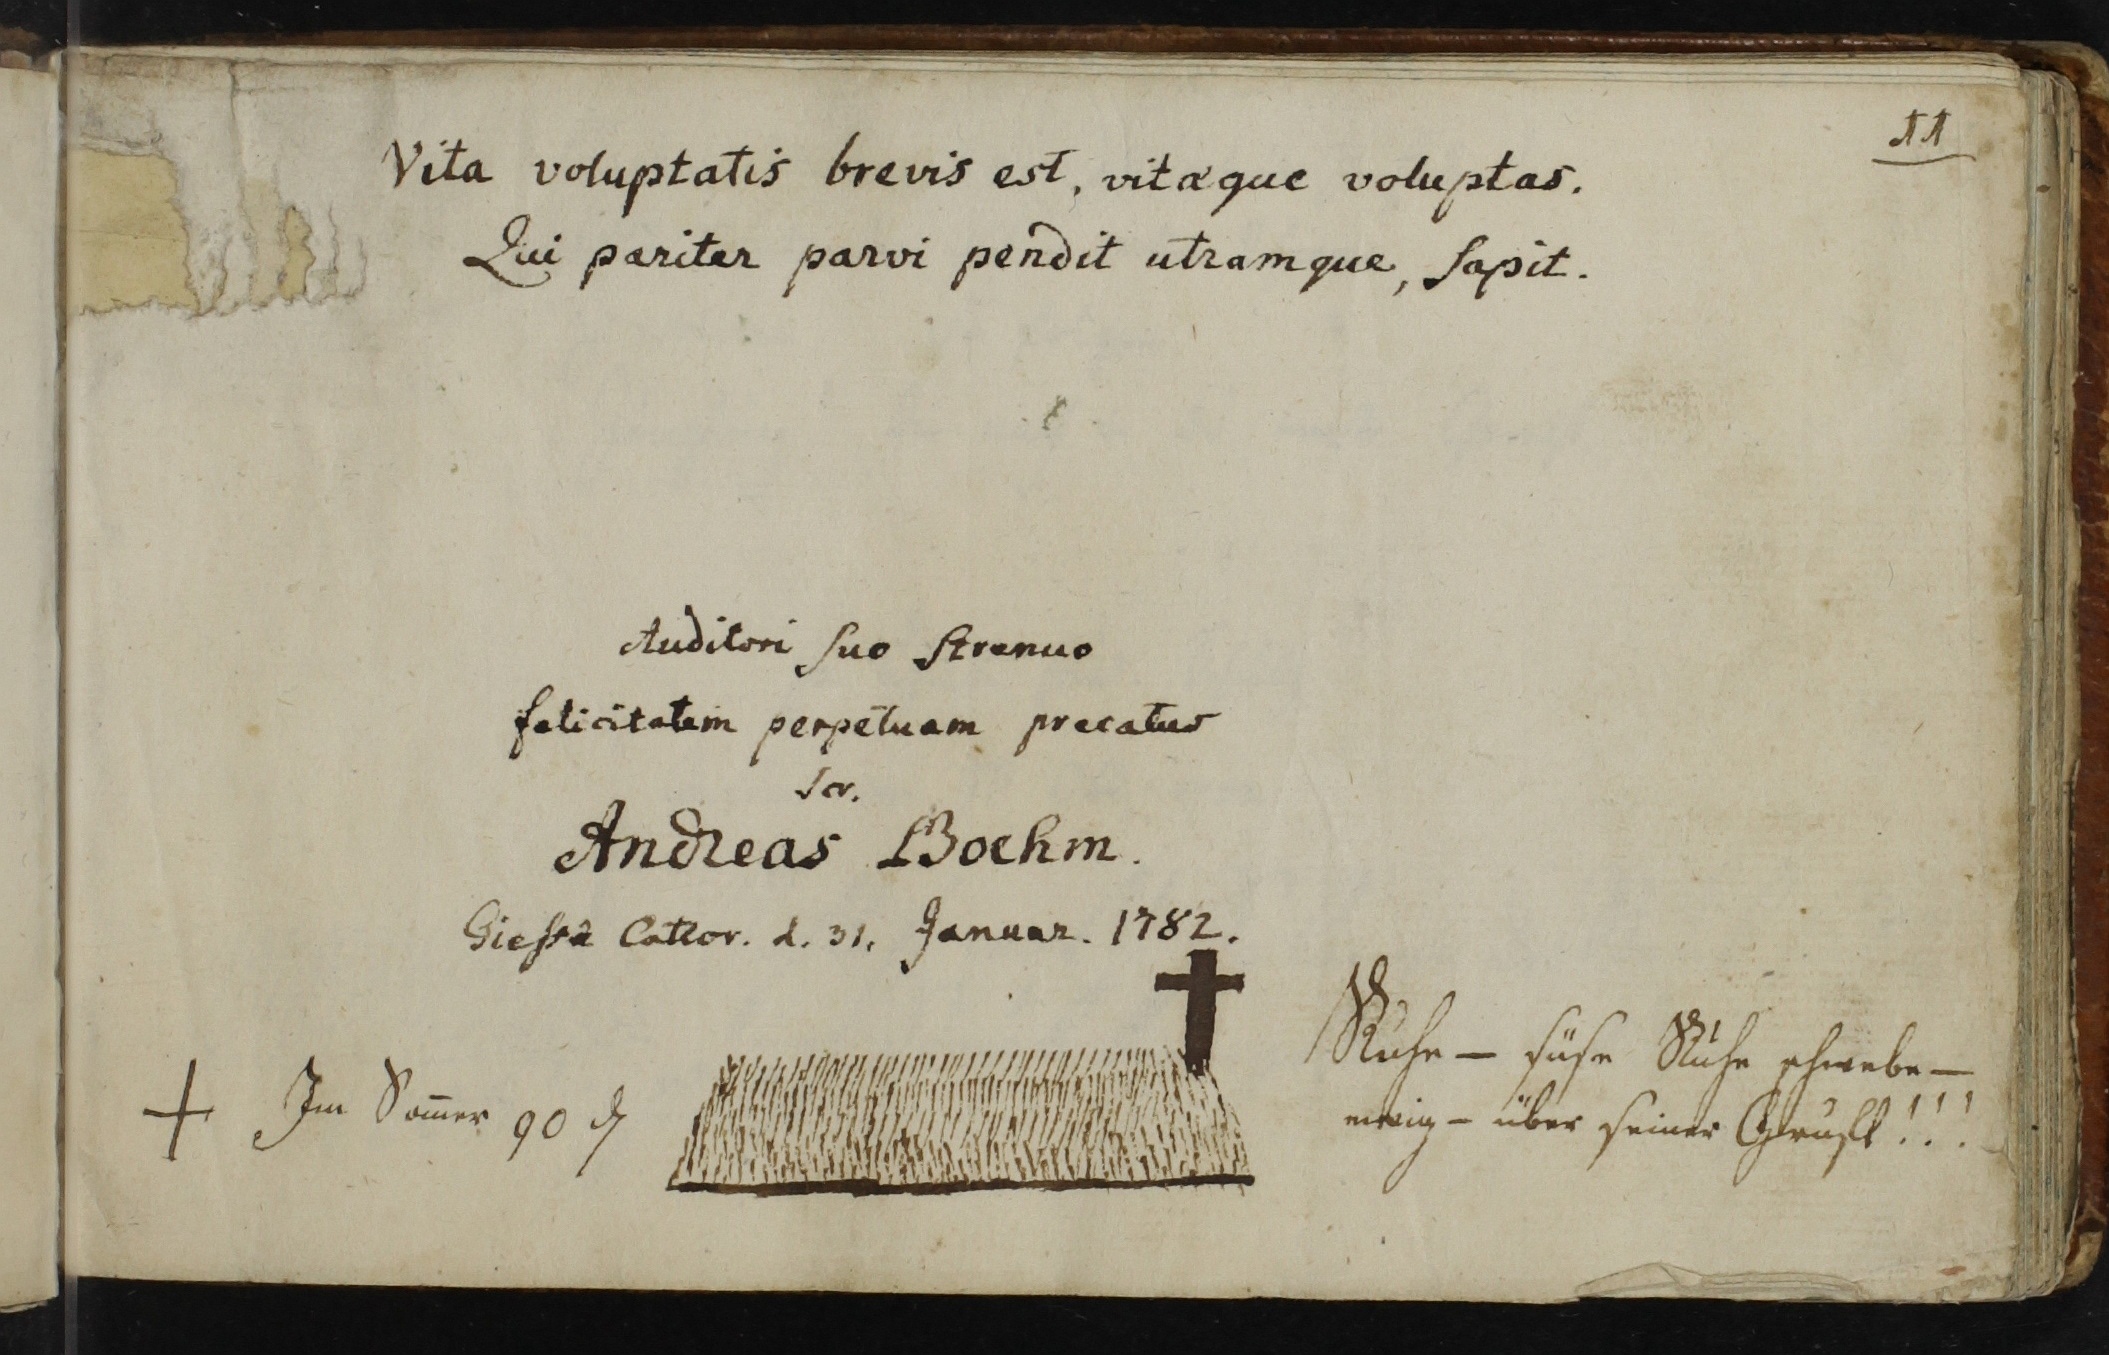 11
Vita voluptatis brevis est, vitæque voluptas.
Qui pariter parvi pendit utramque, sapit.
Auditori suo strenuo
felicitatem perpetuam precatus
scr.
Andreas Boehm.
Giessæ Cattor. d. 31. Januar. 1782.
Im Som̄er 90
Ruhe – süse Ruhe schwebe –
ewig – über seiner Gruft!!!